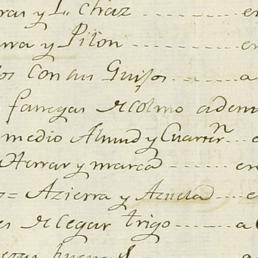 ras y L. chaz ----- en
rra y Piton ------- en
os con sus Guisos ---- a
fanegas de colmo adem
medio Almud y Cuarter.n
Herrar y marca ----- en
o = Azierra y Azuela --- en
es de legar trigo ---- a